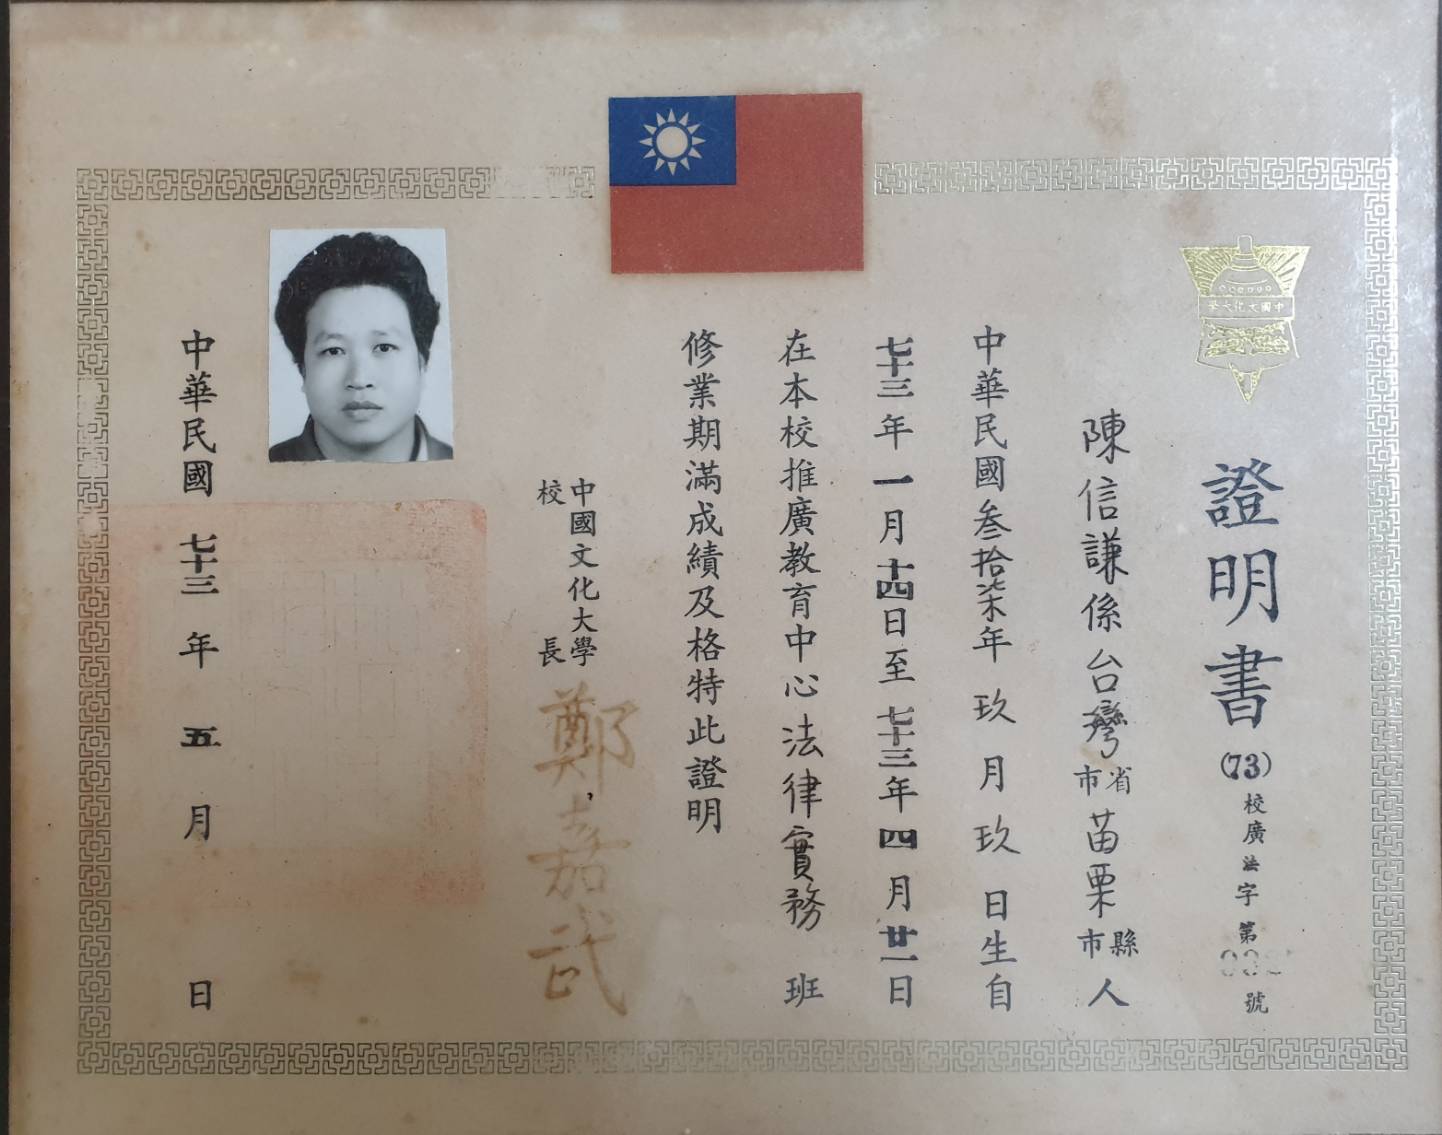 中國文化大學
證明書
(73)校廣法字第號
陳信謙係台灣省市苗栗縣市人
中華民國叁拾柒年玖月玖日生自
七十三年一月十四日至七十三年四月廿一日
在本校推廣教育中心法律實務班
修業期滿成績及格特此證明
中國文化大學
校長
鄭嘉武
中華民國七十三年五月日